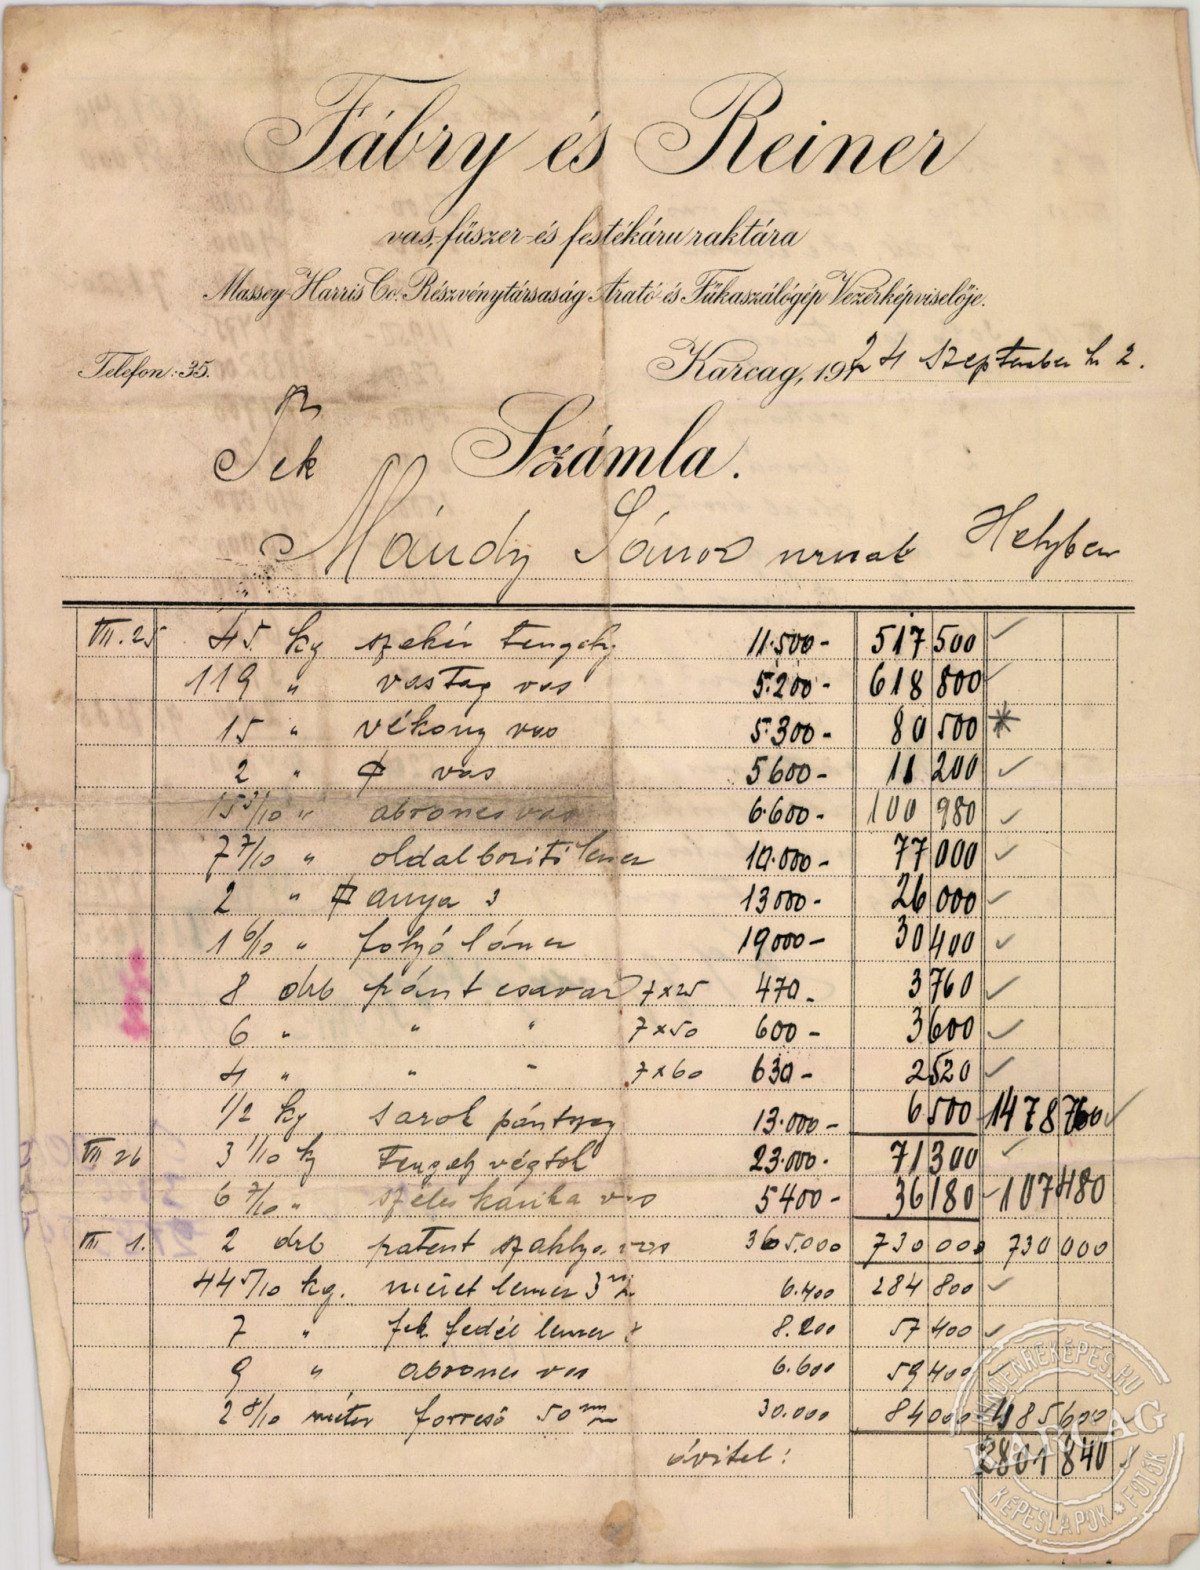 Fábry és Reiner
vas, fűszer- és festékáru raktára
Massey-Harris Co. Részvénytársaság Arató- és Fűkaszálógép Vezérképviselője.
Telefon: 35. Karcag, 1924 szeptember hó 2.
Tek
Számla.
Mándy János urnak Helyben
VII. 25 45 kg szekér tengely 11.500- 517 500
119 " vastag vas 5.200- 618 800
15 " vékony vas 5.300- 80 500
2 " vas 5600- 11 200
15 3/10 " abroncs vas 6.600- 100 980
7 7/10 " oldalboritó lemez 10.000- 77 000
2 " anya 13000- 26 000
1 6/10 " folyó 19000- 30 400
8 drb pánt csavar 7x25 470- 3 760
6 " " " 7x50 600- 3 600
4 " " " 7x60 630- 2 520
1/2 kg sarok 13.000- 6 500 1478 760
VII 26 3 1/10 kg tengely végtok 23.000- 71 300
6 7/10 " széles vas 5400- 36 180 107 480
VIII. 1. 2 drb patent vas 365.000 730 000 730 000
44 5/10 kg. méret lemez 3 6.400 284 800
7 " fek. fedél lemez 8.200 57 400
9 " abroncs vas 6.600 59 400
2 8/10 méter forrcső 50 mm 30.000 84 000 485 600
átvitel: 2801 840
MINDENKEPEPES.HU
KARCAG
KÉPESLAPOK * FOTÓK